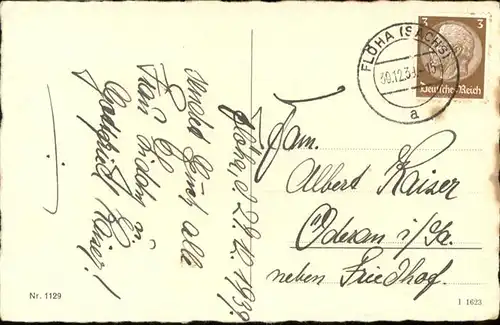 FLÖHA (SACHS)
30.12.39
a
3 3
Deutsches Reich
Flöha, d. 29.12.1939.
Euch alle
Gottfried Kaiser!
Fam.
Albert Kaiser
Oederan i/Sa.
neben Friedhof.
Nr. 1129
I 1623